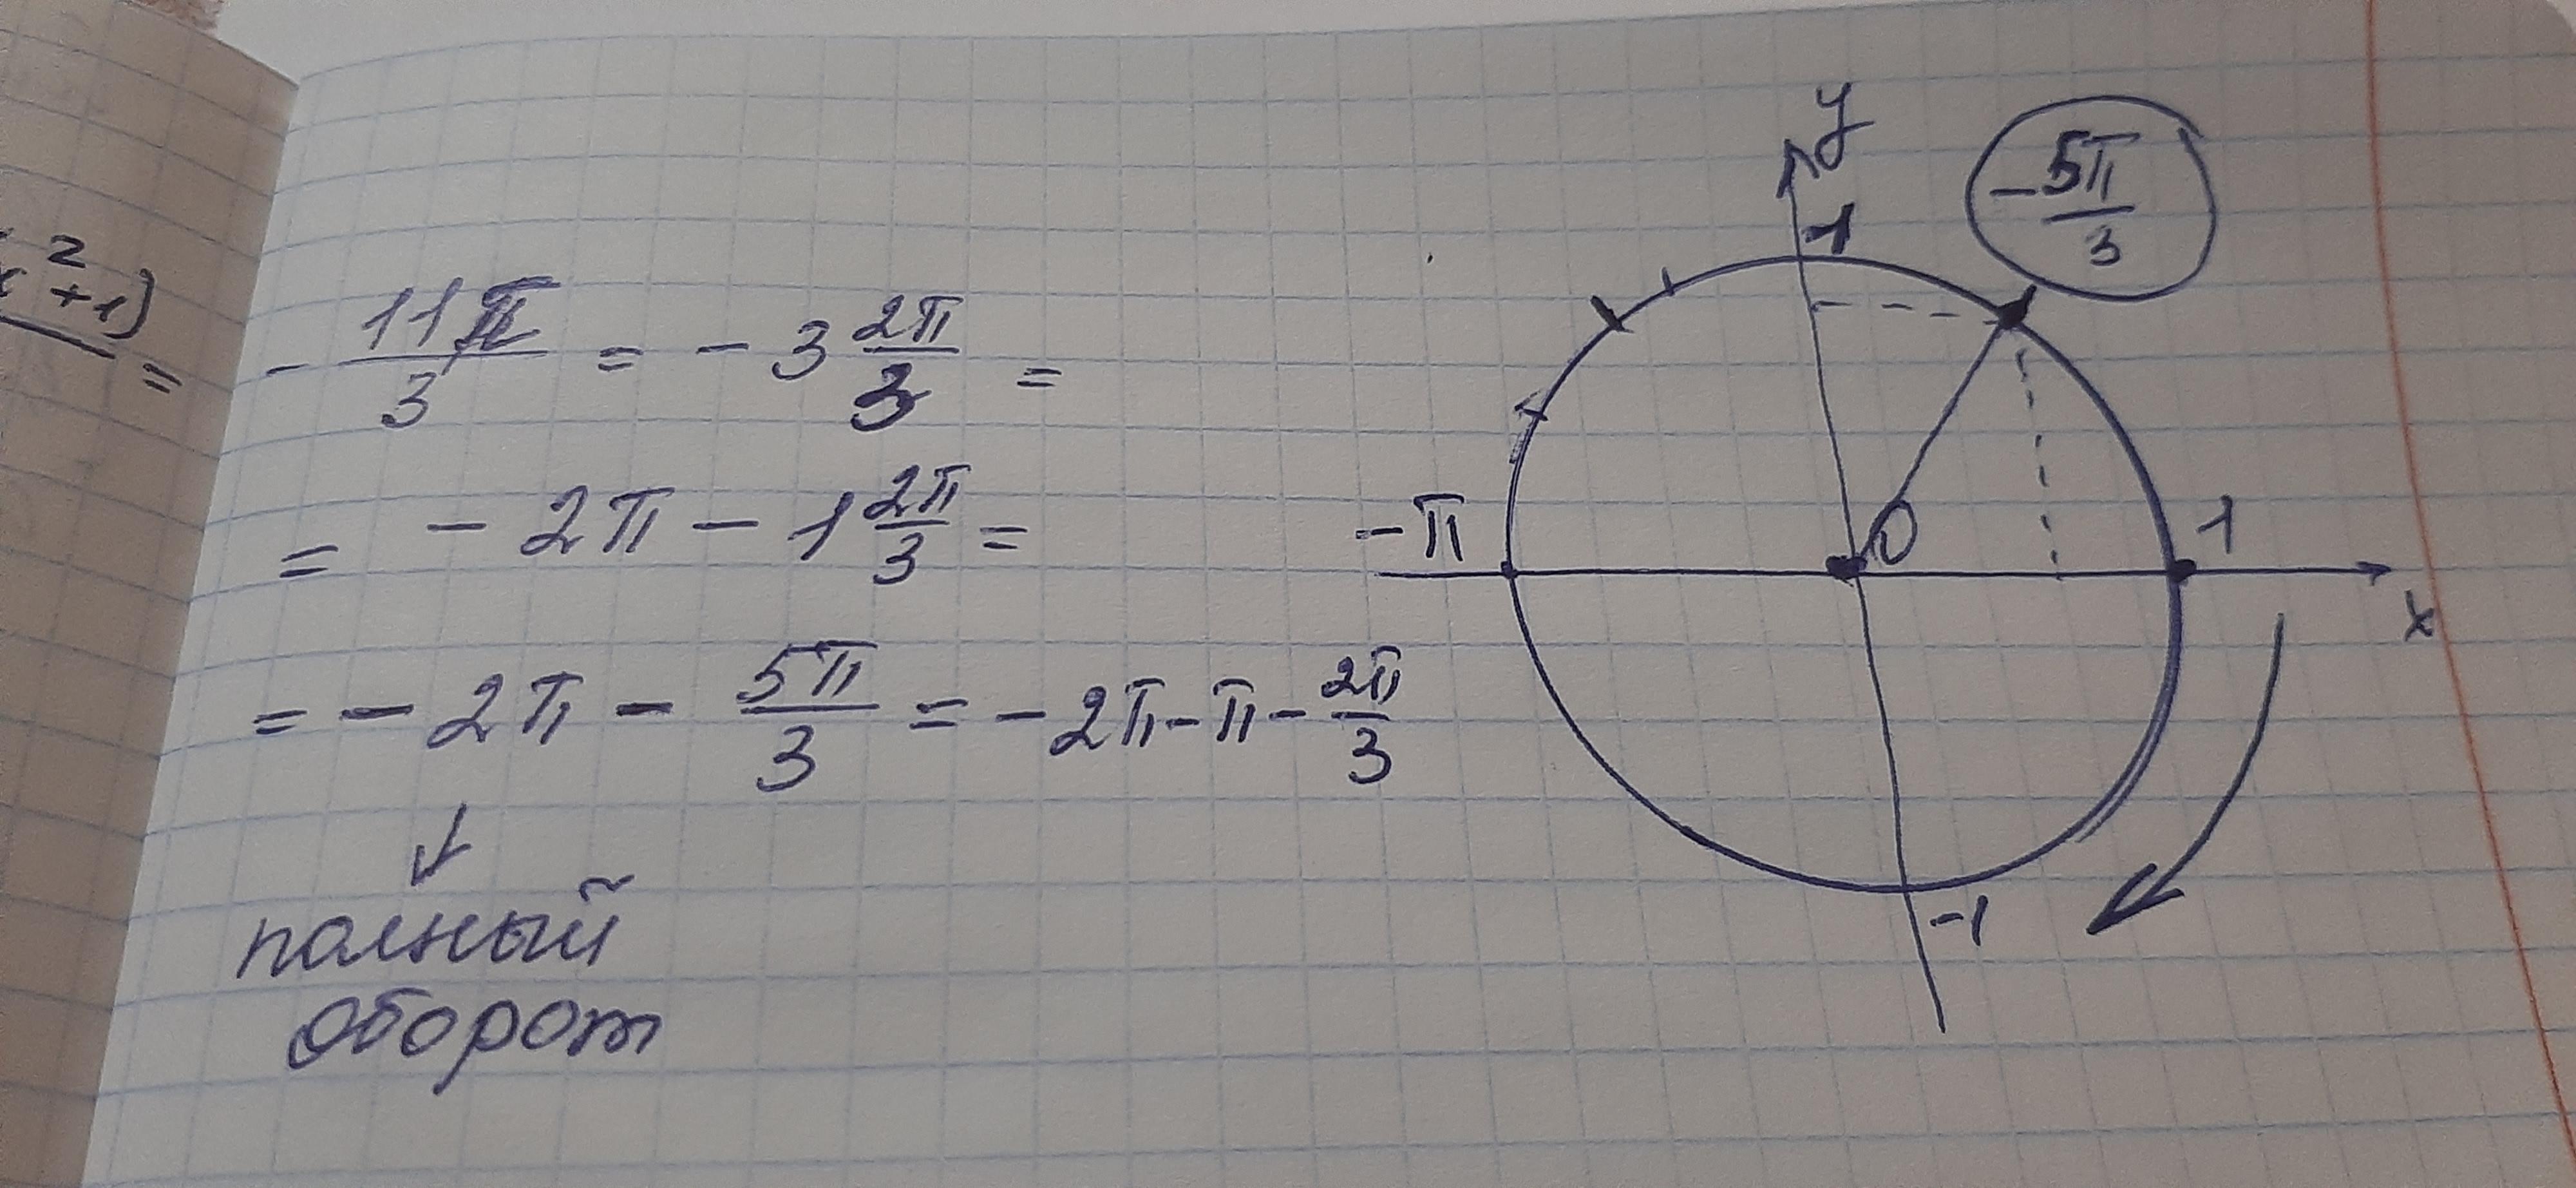 x² + 1)
=
- 11π/3 = - 3 2π/3 =
= - 2π - 1 2π/3 =
= - 2π - 5π/3 = - 2π - π - 2π/3
полный
оборот
y
1
- 5π/3
-π
0
1
x
-1